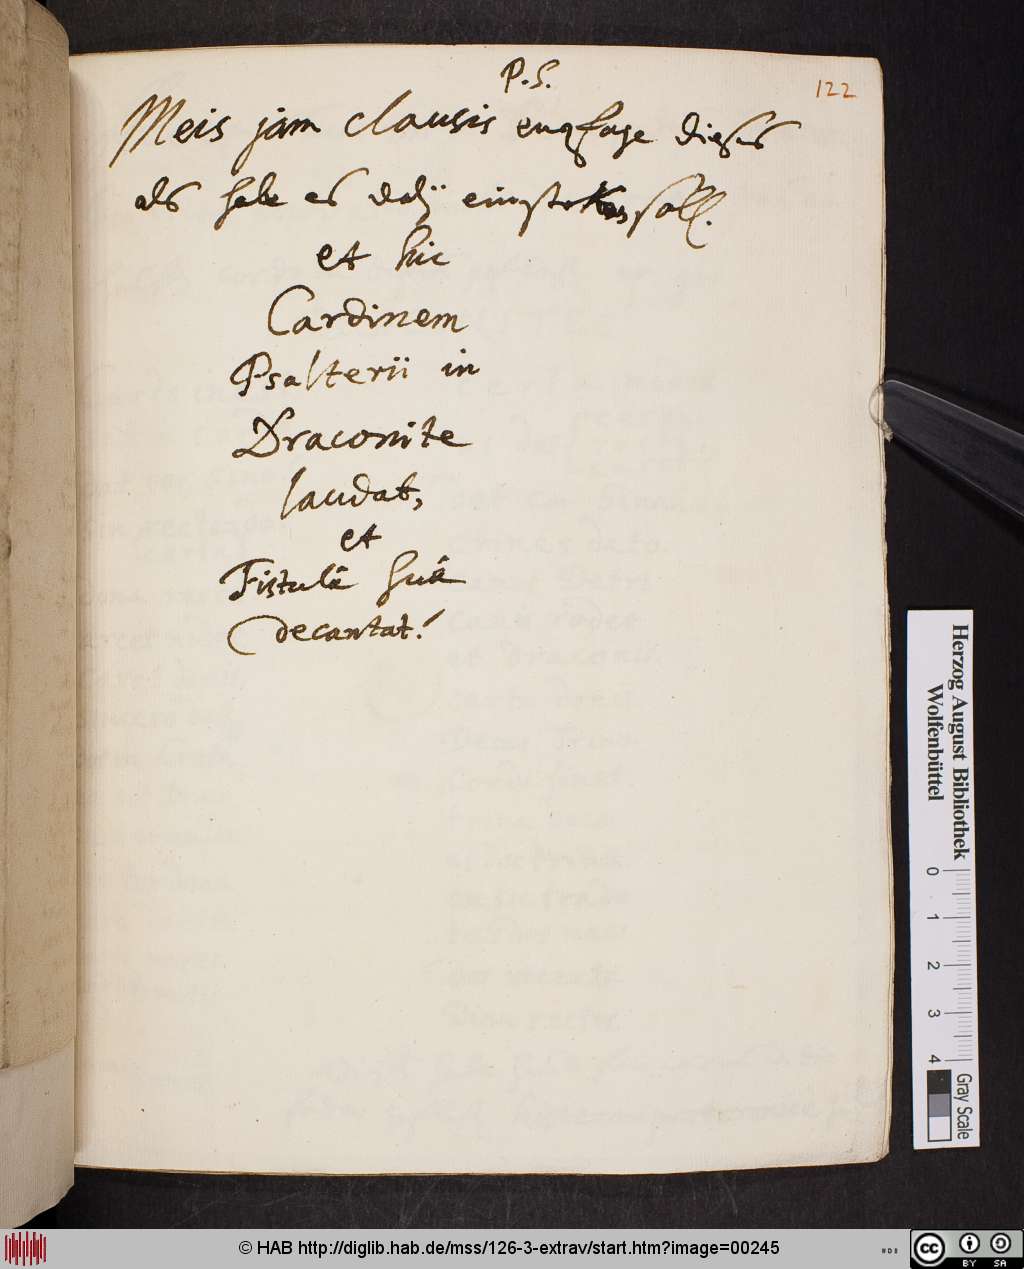 P. S.
122
Meis jam clausis empfage dieses
als habe es dazu einstecken soll.
et hic
Cardinem
Psalterii in
Draconite
laudat,
et
Fistulâ suâ
decantat!
Herzog August Bibliothek
Wolfenbüttel
0 1 2 3 4
Gray Scale
© HAB http://diglib.hab.de/mss/126-3-extrav/start.htm?image=00245
cc BY SA